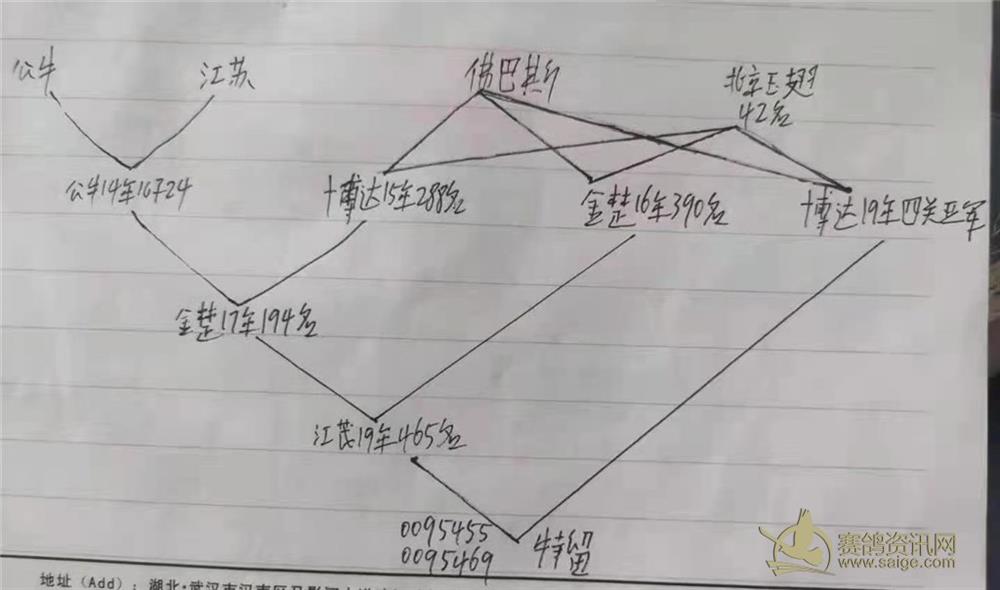 公牛
江苏
佛巴斯
北京巨翅
42名
公牛14年16724
博达15年288名
金楚16年390名
博达19年四关亚军
金楚17年194名
江茂19年465名
0095455
0095469
特留
赛鸽资讯网
www.saige.com
地址（Add）：湖北·武汉市汉南区